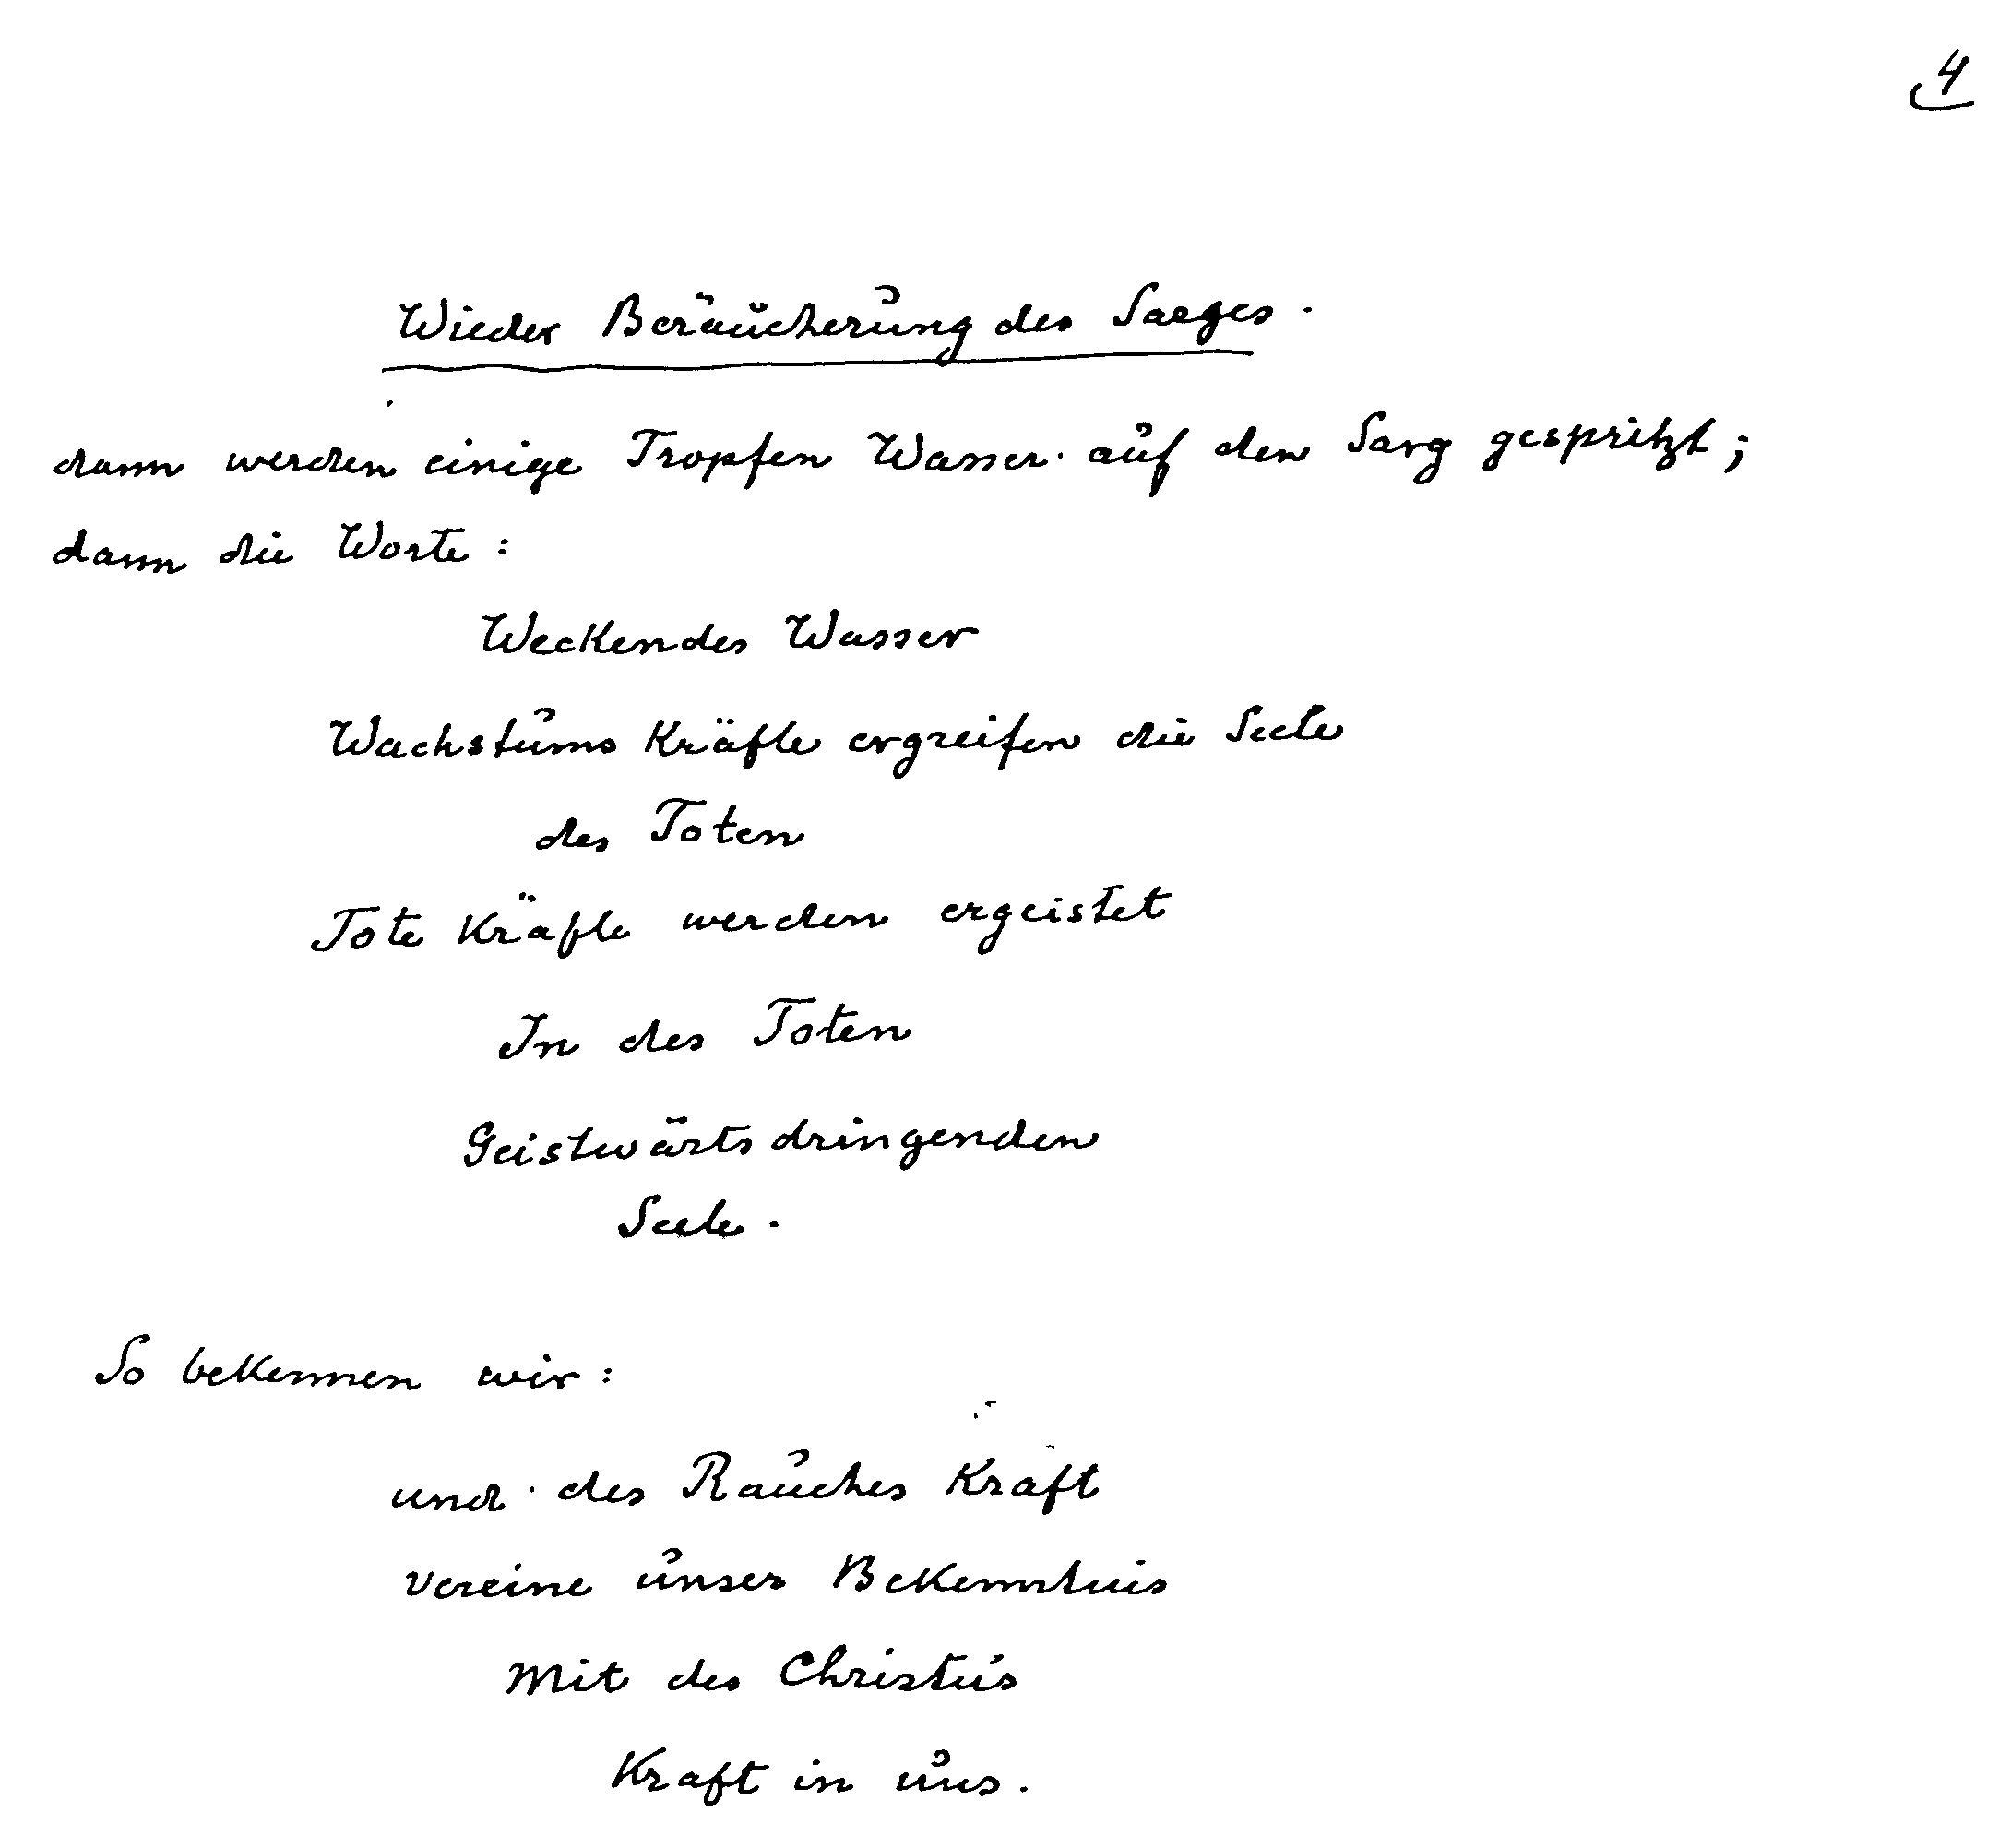 4
Wieder Beräucherung des Sarges.
dann werden einige Tropfen Wasser auf den Sarg gespritzt;
dann die Worte:
Weckendes Wasser
Wachstums Kräfte ergreifen die Seele
des Toten
Tote Kräfte werden ergeistet
In des Toten
Geistwärts dringenden
Seele.
So bekennen wir:
und des Rauches Kraft
vereine unser Bekenntnis
mit des Christus
Kraft in uns.